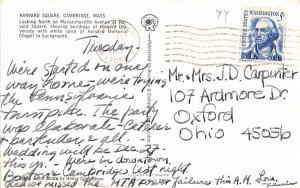 HARVARD SQUARE, CAMBRIDGE, MASS.
Looking North on Massachusetts Avenue at Harvard Square, showing buildings of Harvard University with white spire of Harvard Memorial Chapel in background.
YY
5¢
WASHINGTON
Tuesday
We've started on our
way home - we're
the Pennsylvania
turnpike. The party
was elaborate - Caterer
+ bartender & all.
Wedding will be Dec. 27
this yr. - We were in downtown
Boston + Cambridge last night.
And we missed the MTA power failure this A.M. Love,
Mr. + Mrs. J.D. Carpenter
107 Ardmore Dr.
Oxford
Ohio 45056